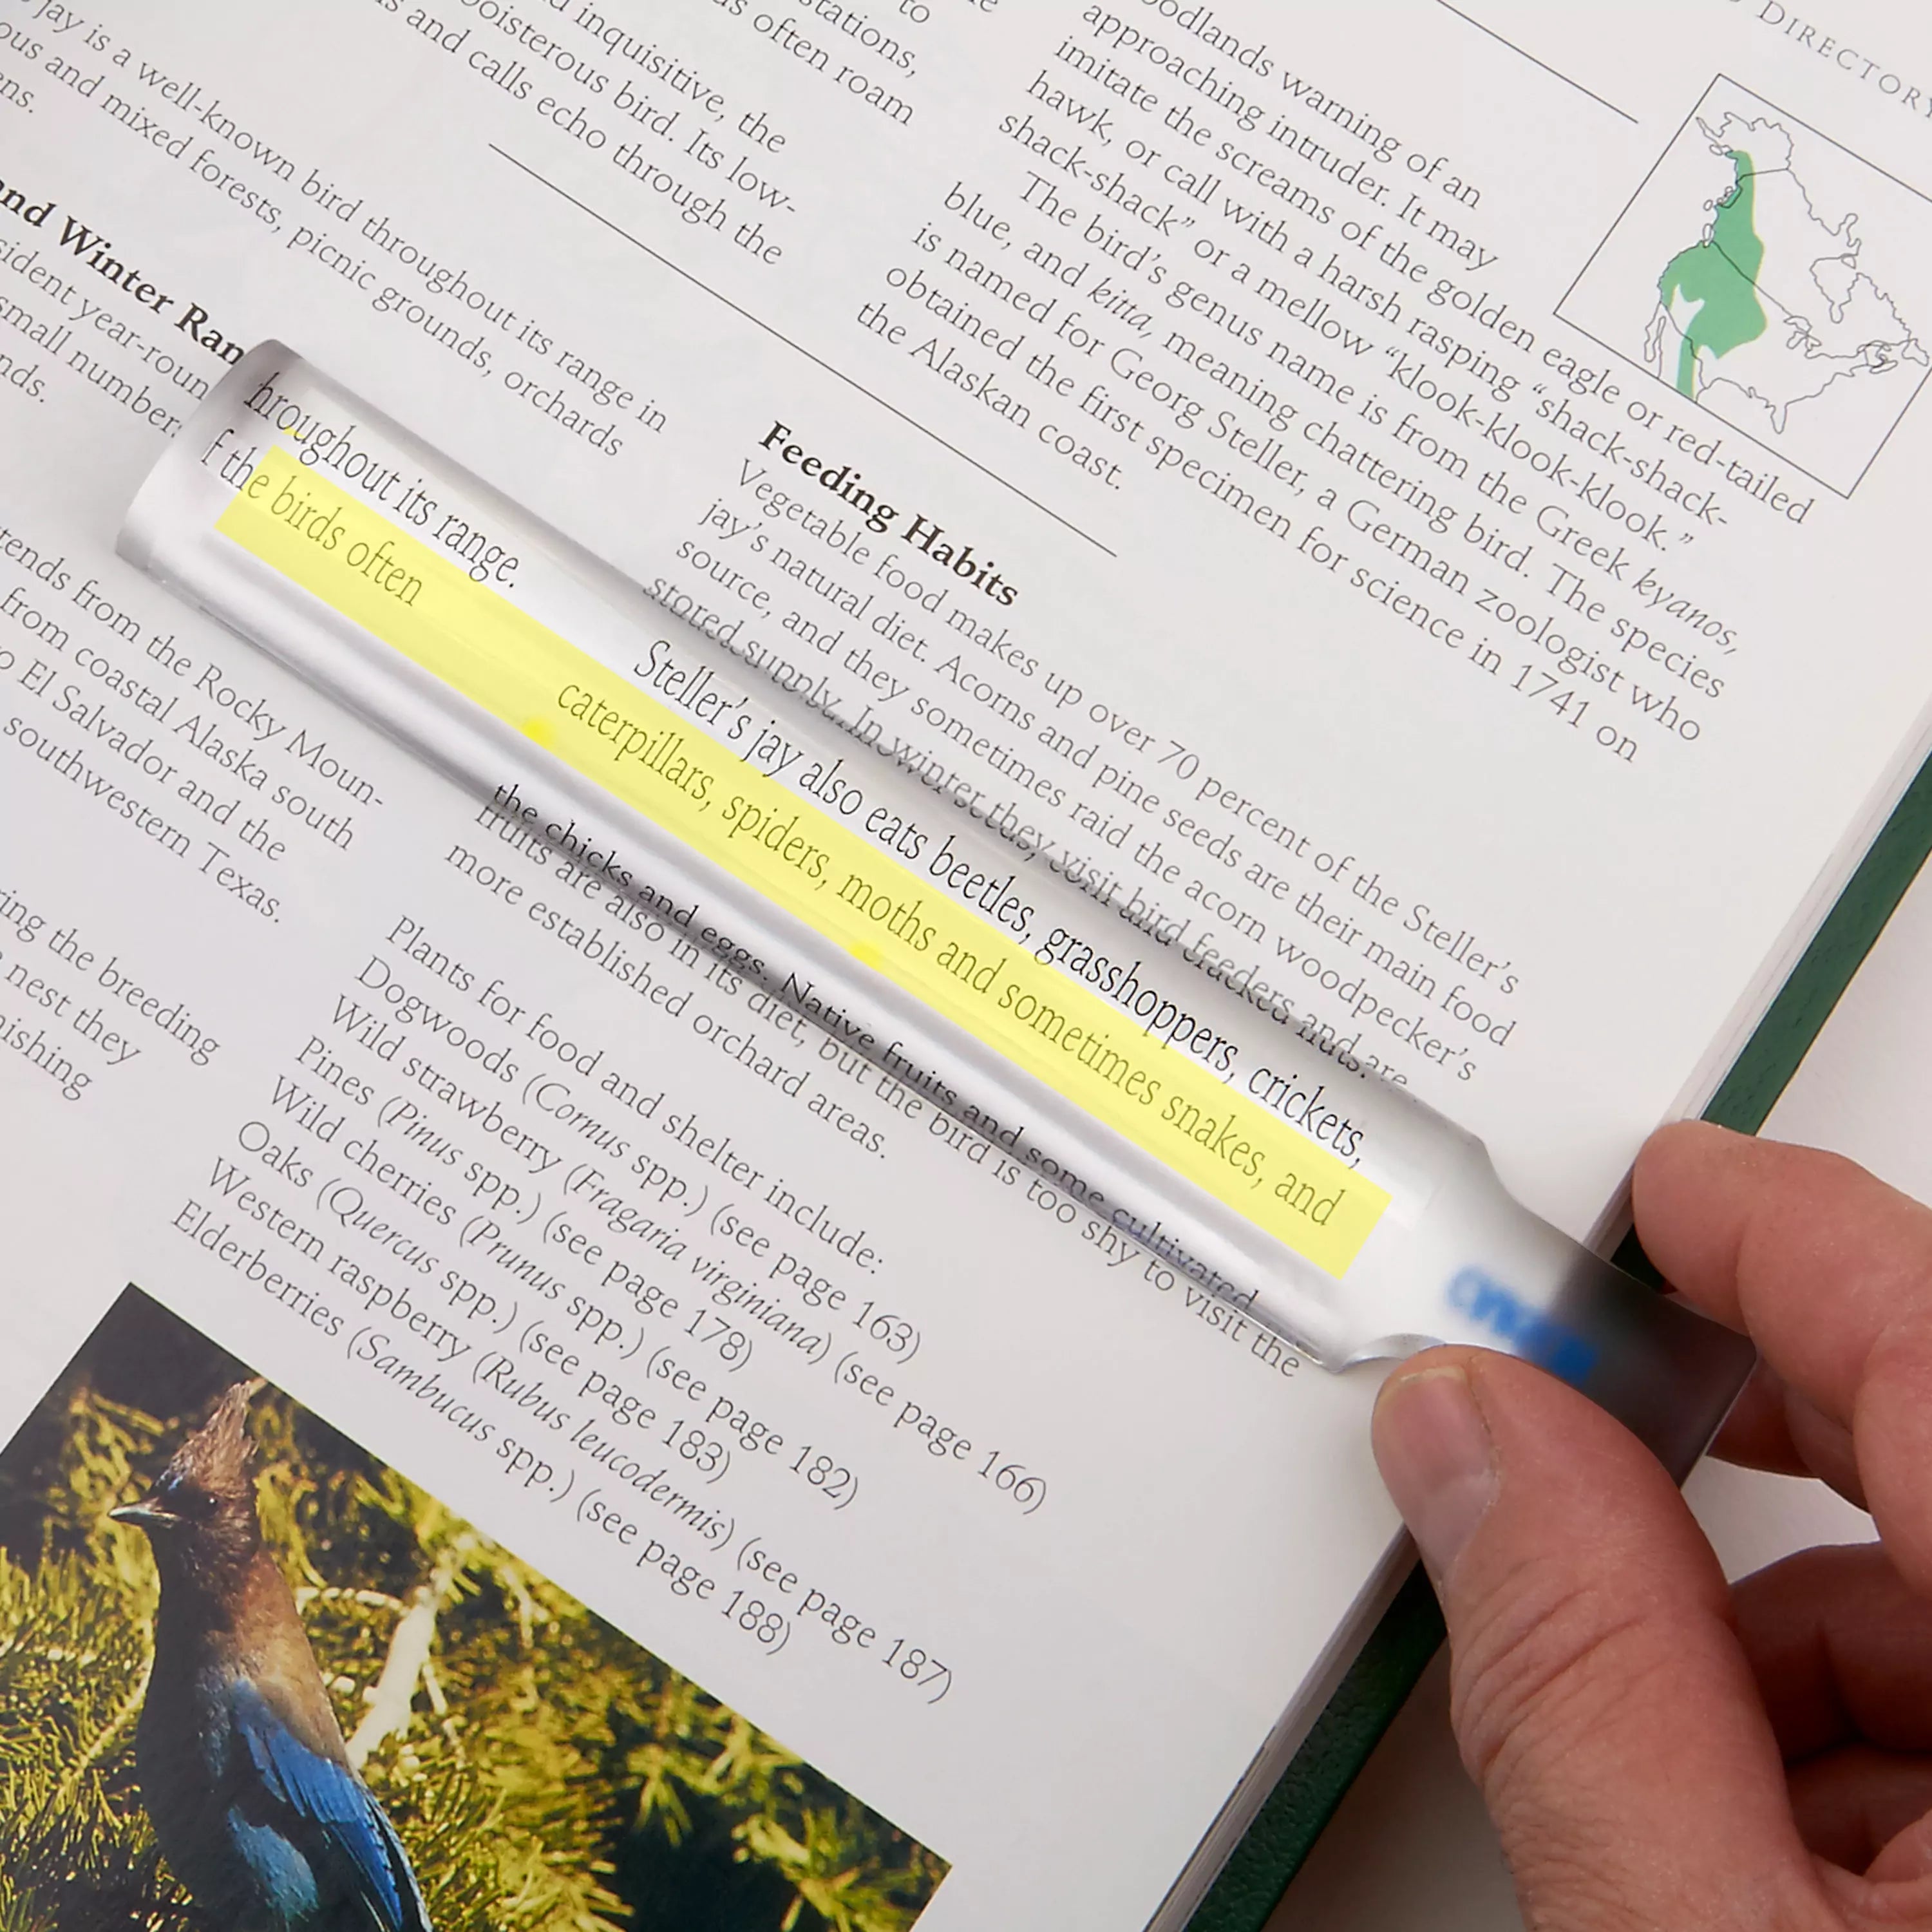 DIRECTORY
jay is a well-known bird throughout its range in
ous and mixed forests, picnic grounds, orchards
ens.
and Winter Ran
sident year-roun
small number
nds.
hroughout its range.
f the birds often
tends from the Rocky Moun-
from coastal Alaska south
o El Salvador and the
southwestern Texas.
ring the breeding
nest they
nishing
to
stations,
s often roam
d inquisitive, the
boisterous bird. Its low-
s and calls echo through the
oodlands warning of an
approaching intruder. It may
imitate the screams of the golden eagle or red-tailed
hawk, or call with a harsh rasping “shack-shack-
shack-shack” or a mellow “klook-klook-klook.”
The bird’s genus name is from the Greek kyanos,
blue, and kitta, meaning chattering bird. The species
is named for Georg Steller, a German zoologist who
obtained the first specimen for science in 1741 on
the Alaskan coast.
Feeding Habits
Vegetable food makes up over 70 percent of the Steller’s
jay’s natural diet. Acorns and pine seeds are their main food
source, and they sometimes raid the acorn woodpecker’s
stored supply. In winter they visit bird feeders and are
nuts.
Steller’s jay also eats beetles, grasshoppers, crickets,
caterpillars, spiders, moths and sometimes snakes, and
the chicks and eggs. Native fruits and some cultivated
fruits are also in its diet, but the bird is too shy to visit the
more established orchard areas.
Plants for food and shelter include:
Dogwoods (Cornus spp.) (see page 163)
Wild strawberry (Fragaria virginiana) (see page 166)
Pines (Pinus spp.) (see page 178)
Wild cherries (Prunus spp.) (see page 182)
Oaks (Quercus spp.) (see page 183)
Western raspberry (Rubus leucodermis) (see page 187)
Elderberries (Sambucus spp.) (see page 188)